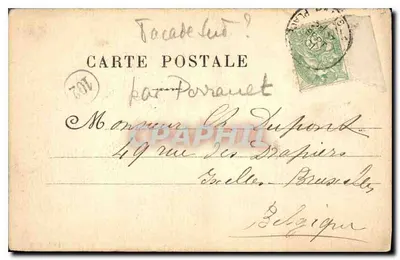 Facade Sud?
CARTE POSTALE
102
par Perrault
Monsieur Ch Dupont
CPAPHIL
49 rue des Drapiers
Ixelles-Bruxelles
Belgique